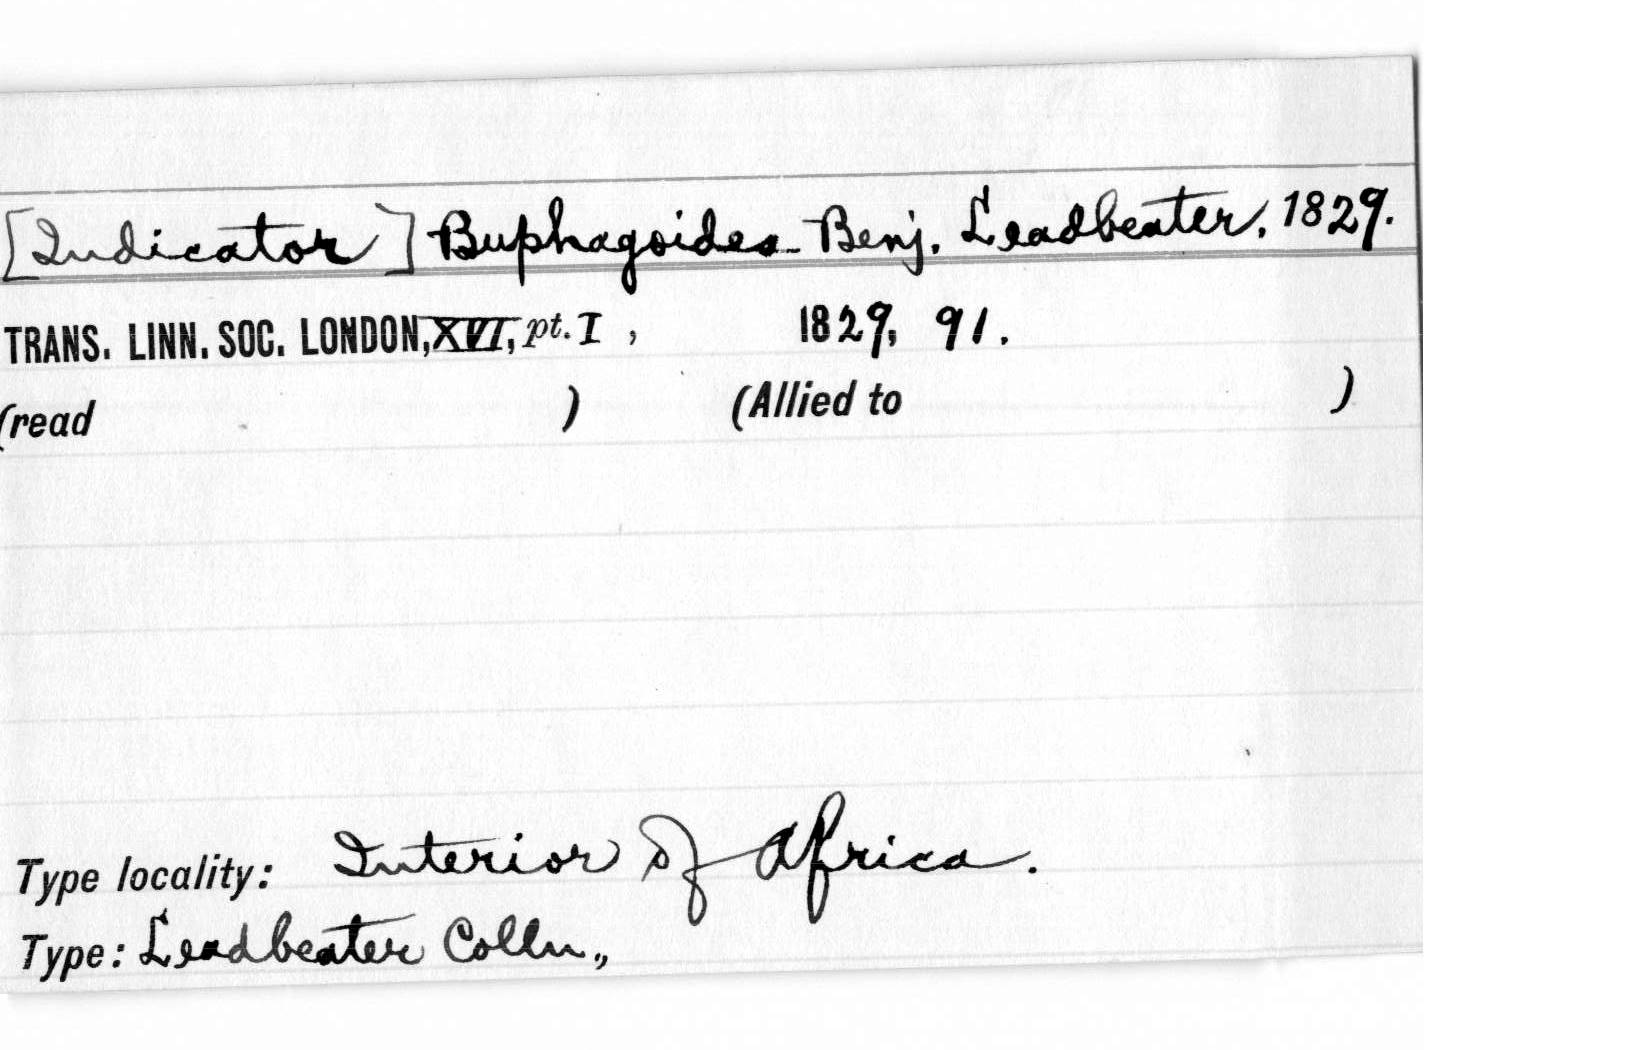 [Indicator] Buphagoides Benj. Leadbeater, 1829.
TRANS. LINN. SOC. LONDON, XVI, pt. I , 1829, 91.
(read ) (Allied to )
Type locality: Interior of Africa.
Type: Leadbeater Colln.,